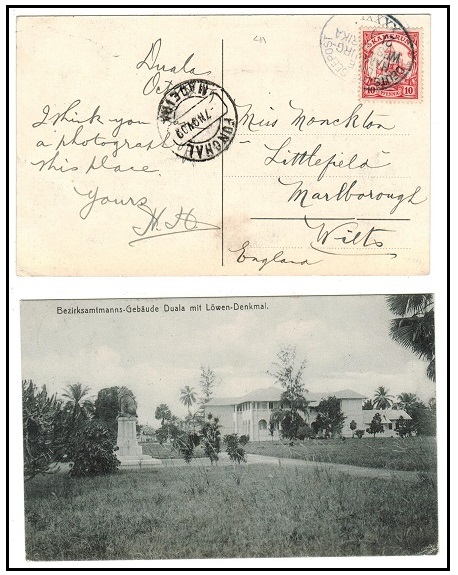 Duala
Oct
I think you
a photograph
this place.
Yours
H. H.
FUNCHAL
7 NOV 09
MADEIRA
SEEPOST
XXXVI
KAMERUN
10 PFENNIG 10
Miss Monckton
"Littlefield"
Marlborough
Wilts
England
Bezirksamtmanns-Gebäude Duala mit Löwen-Denkmal.